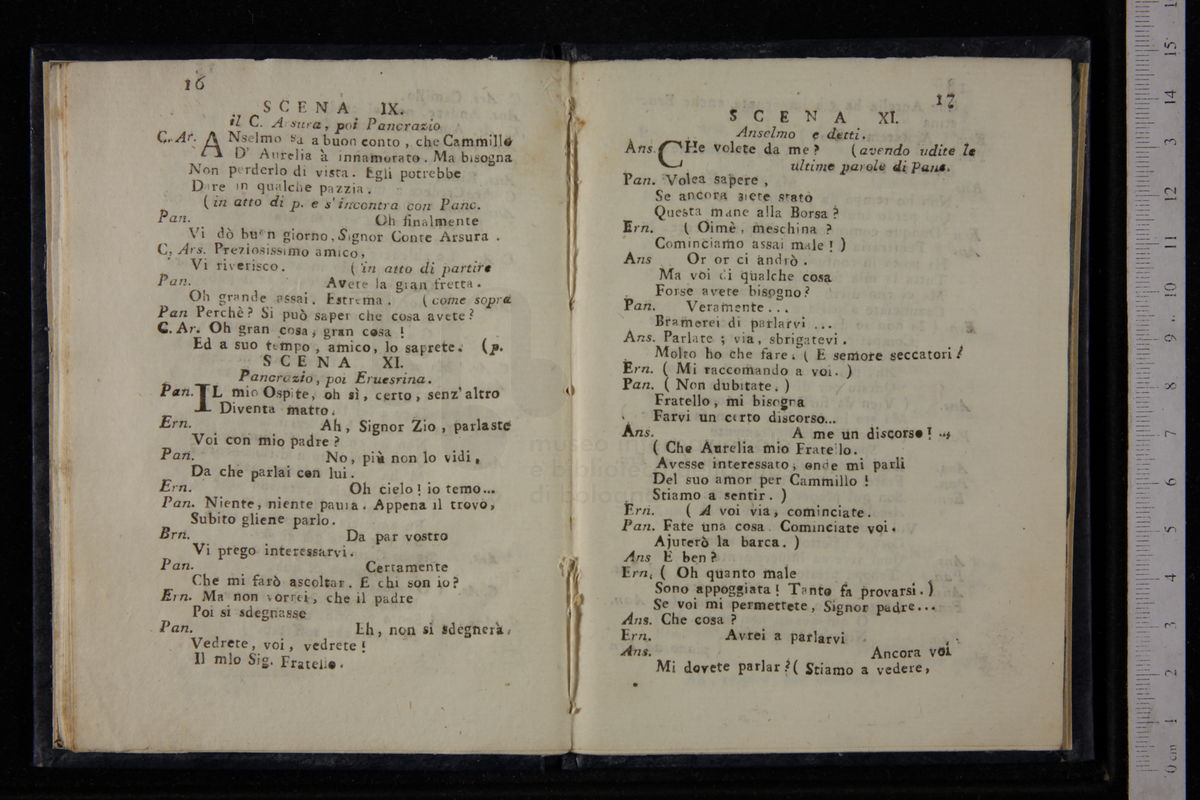 16
SCENA IX.
il C. Arsura, poi Pancrazio
C. Ar. ANselmo sa a buon conto, che Cammillo
D' Aurelia à innamorato. Ma bisogna
Non perderlo di vista. Egli potrebbe
Dare in qualche pazzia.
(in atto di p. e s'incontra con Panc.
Pan. Oh finalmente
Vi dò buon giorno, Signor Conte Arsura.
C, Ars. Preziosissimo amico,
Vi riverisco. (in atto di partire
Pan. Avete la gran fretta.
Oh grande assai. Estrema. (come sopra
Pan Perchè? Si può saper che cosa avete?
C. Ar. Oh gran cosa, gran cosa!
Ed a suo tempo, amico, lo saprete. (p.
SCENA XI.
Pancrazio, poi Eruesrina.
Pan. IL mio Ospite, oh sì, certo, senz'altro
Diventa matto.
Ern. Ah, Signor Zio, parlaste
Voi con mio padre?
Pan. No, più non lo vidi,
Da che parlai con lui.
Ern. Oh cielo! io temo...
Pan. Niente, niente paura. Appena il trovo,
Subito gliene parlo.
Brn. Da par vostro
Vi prego interessarvi.
Pan. Certamente
Che mi farò ascoltar. E chi son io?
Ern. Ma non vorrei, che il padre
Poi si sdegnasse
Pan. Eh, non si sdegnerà,
Vedrete, voi, vedrete!
Il mIo Sig. Fratello.
17
SCENA XI.
Anselmo e detti.
Ans. CHe volete da me? (avendo udite le
ultime parole di Panc.
Pan. Volea sapere,
Se ancora siete stato
Questa mane alla Borsa?
Ern. (Oimè, meschina?
Cominciamo assai male!)
Ans Or or ci andrò.
Ma voi di qualche cosa
Forse avete bisogno?
Pan. Veramente...
Bramerei di parlarvi...
Ans. Parlate; via, sbrigatevi.
Molto ho che fare. (E semore seccatori!
Ern. (Mi raccomando a voi.)
Pan. (Non dubitate.)
Fratello, mi bisogna
Farvi un certo discorso...
Ans. A me un discorso! ..
(Che Aurelia mio Fratello.
Avesse interessato, onde mi parli
Del suo amor per Cammillo!
Stiamo a sentir.)
Ern. (A voi via, cominciate.
Pan. Fate una cosa. Cominciate voi.
Ajuterò la barca.)
Ans E ben?
Ern, (Oh quanto male
Sono appoggiata! Tanto fa provarsi.)
Se voi mi permettete, Signor padre...
Ans. Che cosa?
Ern. Avrei a parlarvi
Ans. Ancora voi
Mi dovete parlar? (Stiamo a vedere,